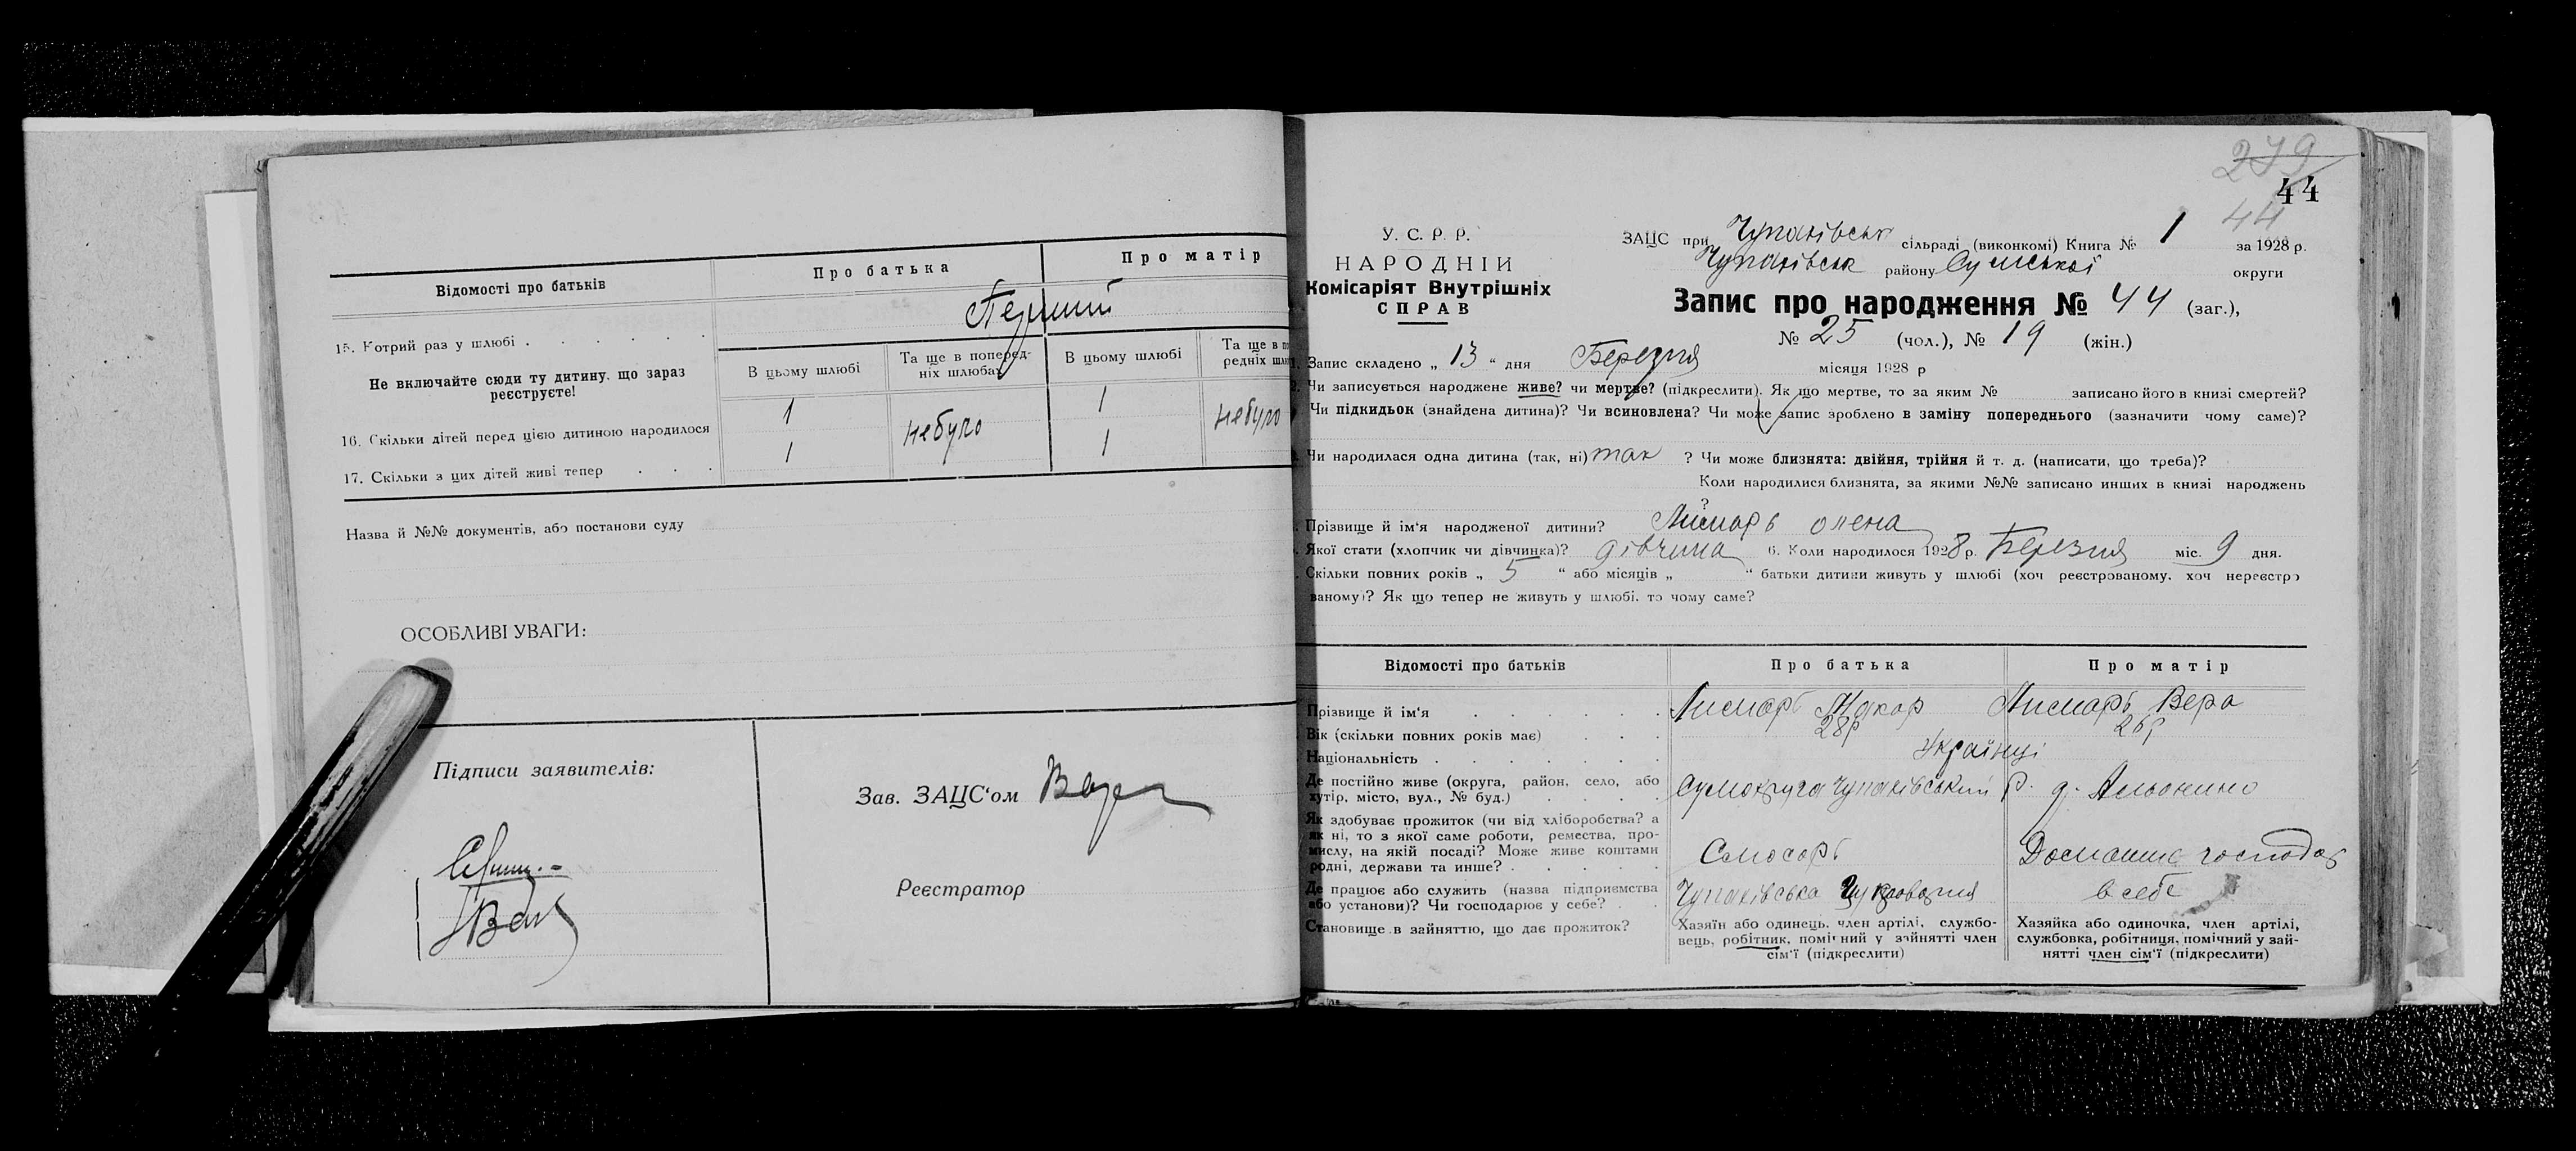 Відомості про батьків
Про батька
Про матір
15. Котрий раз у шлюбі
Перший
Не включайте сюди ту дитину, що зараз
реєструєте!
В цьому шлюбі
Та ще в поперед-
ніх шлюбах
В цьому шлюбі
Та ще в по
редніх шлю
16. Скільки дітей перед цією дитиною народилося
1
небуло
1
небуло
17. Скільки з цих дітей живі тепер
1
1
Назва й №№ документів, або постанови суду
ОСОБЛИВІ УВАГИ:
Підписи заявителів:
Зав. ЗАЦС'ом
Реєстратор
279
44
44
У. С. Р. Р.
НАРОДНІЙ
Комісаріят Внутрішніх
СПРАВ
ЗАЦС при Чупахівськ сільраді (виконкомі) Книга № 1 за 1928 р.
Чупахівськ району Сумської округи
Запис про народження № 44 (заг.),
№ 25 (чол.), № 19 (жін.)
1. Запис складено „ 13 “ дня Березня місяця 1928 р
2. Чи записується народжене живе? чи мертве? (підкреслити). Як що мертве, то за яким № записано його в книзі смертей?
Чи підкидьок (знайдена дитина)? Чи всиновлена? Чи може запис зроблено в заміну попереднього (зазначити чому саме)?
Чи народилася одна дитина (так, ні) так ? Чи може близнята: двійня, трійня й т. д. (написати, що треба)?
Коли народилися близнята, за якими №№ записано инших в книзі народжень
?
Прізвище й ім'я народженої дитини? олена
Якої стати (хлопчик чи дівчинка)? дівчина 6. Коли народилося 1928 р. Березня міс. 9 дня.
Скільки повних років „ 5 “ або місяців „ “ батьки дитини живуть у шлюбі (хоч реєстрованому, хоч нереєстро
ваному)? Як що тепер не живуть у шлюбі, то чому саме?
Відомості про батьків
Про батька
Про матір
Прізвище й ім'я
Макар
Вера
Вік (скільки повних років має)
28р
26р
Національність
Українці
Де постійно живе (округа, район, село, або
хутір, місто, вул., № буд.)
Сумокруга Чупахівський р.
Як здобуває прожиток (чи від хліборобства? а
як ні, то з якої саме роботи, ремества, про-
мислу, на якій посаді? Може живе коштами
родні, держави та инше?
Слюсарь
Домашне господар
Де працює або служить (назва підприємства
або установи)? Чи господарює у себе?
Чупахівська Цукроварня
в себе
Становище в зайняттю, що дає прожиток?
Хазяїн або одинець, член артілі, службо-
вець, робітник, помічний у зайнятті член
сім'ї (підкреслити)
Хазяйка або одиночка, член артілі,
службовка, робітниця, помічний у зай-
нятті член сім'ї (підкреслити)